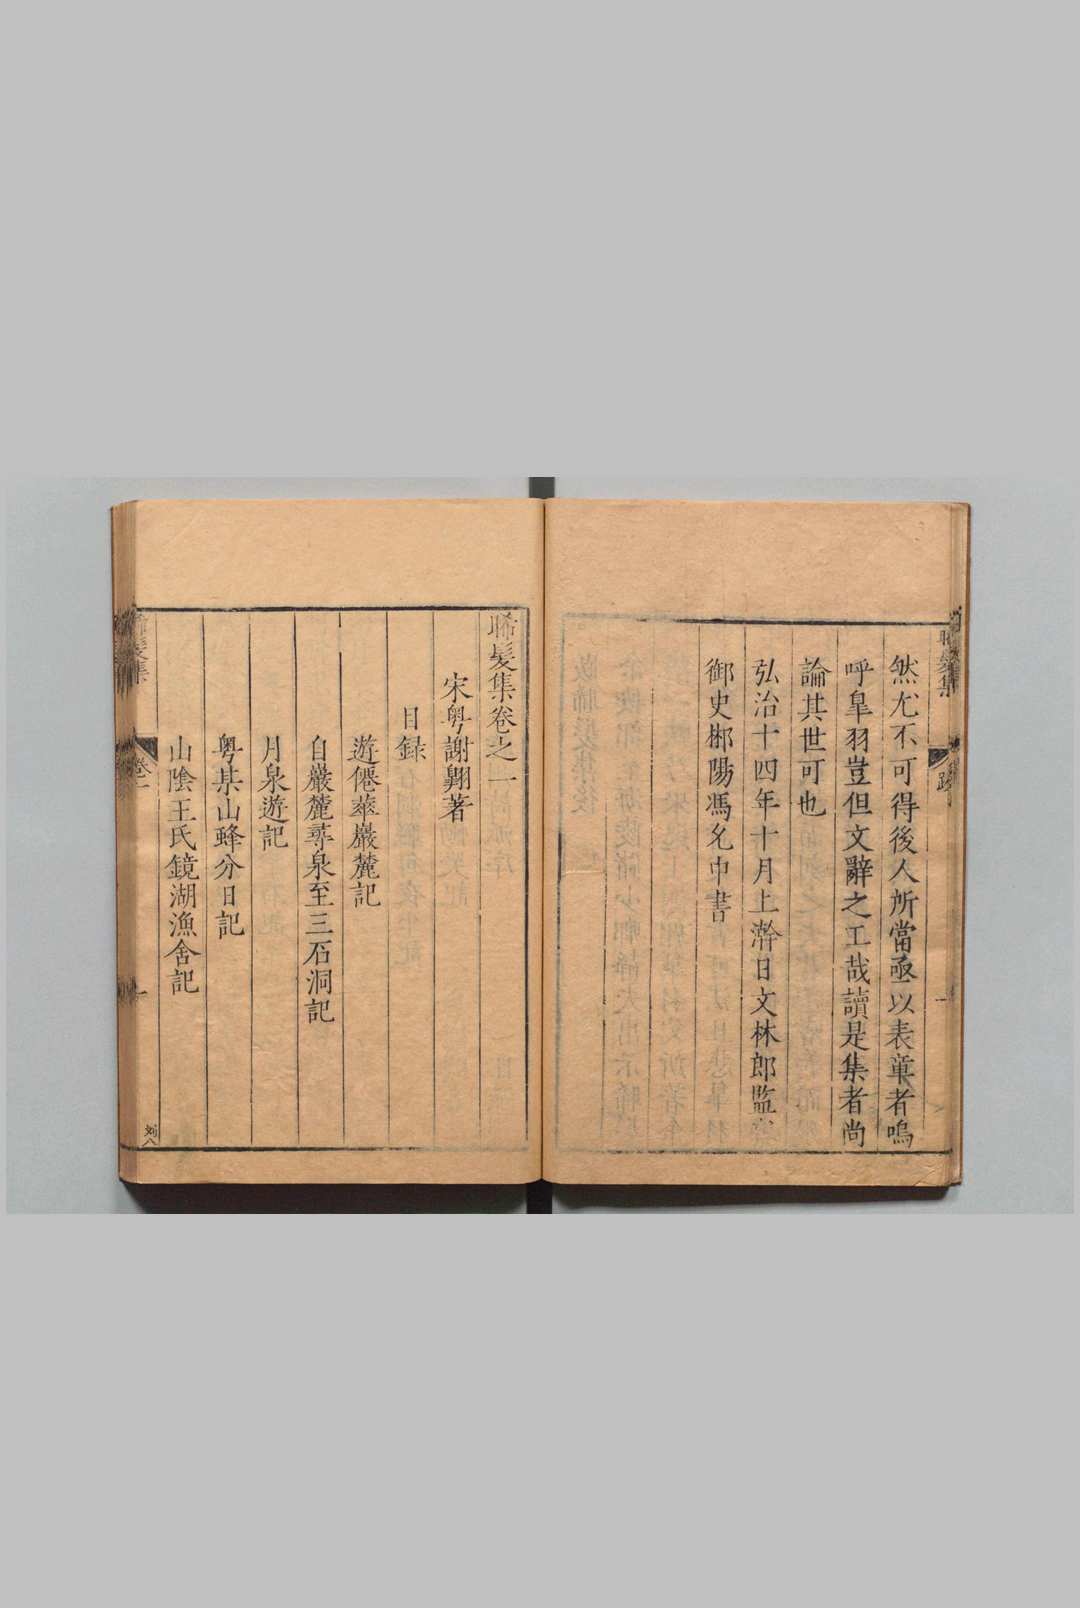 然尤不可得後人所當亟以表章者嗚
呼皐羽豈但文辭之工哉讀是集者尚
論其世可也
弘治十四年十月上澣日文林郎監察
御史郴陽馮允中書
晞髮集
跋
一
晞髮集卷之一
宋粤謝翺著
目録
遊僊華巖麓記
自巖麓尋泉至三石洞記
月泉遊記
粤某山蜂分日記
山陰王氏鏡湖漁舍記
晞髮集
卷一
一